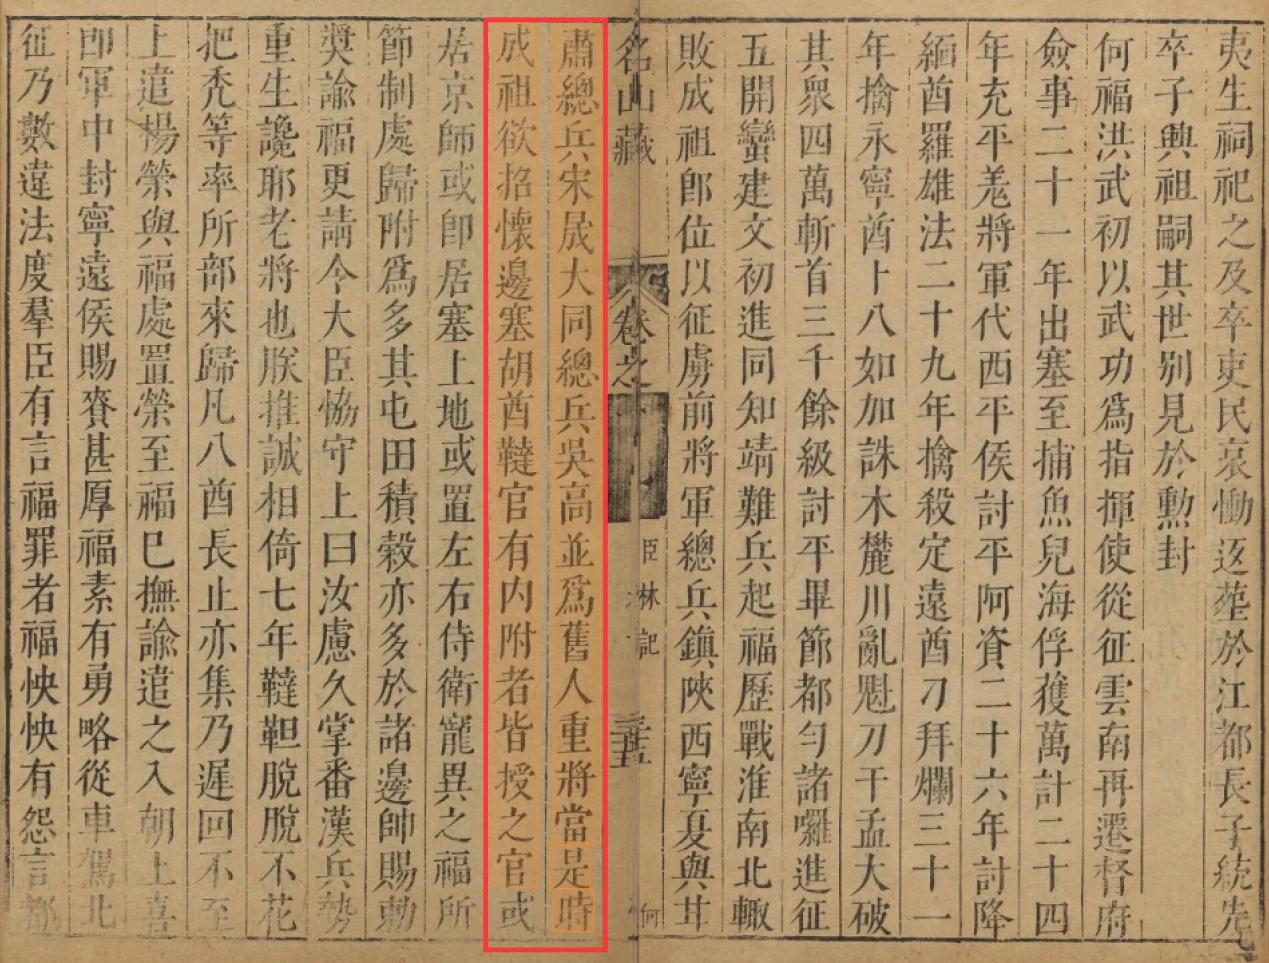 夷生祠祀之及卒吏民哀慟返塟於江都長子統先
卒子興祖嗣其世別見於勲封
何福洪武初以武功爲指揮使從征雲南再遷督府
僉事二十一年出塞至捕魚兒海俘獲萬計二十四
年充平羗將軍代西平侯討平阿資二十六年討降
緬酋羅雄法二十九年擒殺定遠酋刀拜爛三十一
年擒永寧酋卜八如加誅木麓川亂魁刀干孟大破
其衆四萬斬首三千餘級討平畢節都勻諸囉進征
五開蠻建文初進同知靖難兵起福歷戰淮南北輙
敗成祖卽位以征虜前將軍總兵鎮陝西寧夏與甘
名山藏 卷之 臣林記 三十五 何
肅總兵宋晟大同總兵吳高並爲舊人重將當是時
成祖欲招懷邊塞胡酋韃官有内附者皆授之官或
居京師或卽居塞上地或置左右侍衛寵異之福所
節制處歸附爲多其屯田積榖亦多於諸邊帥賜勅
奬諭福更請今大臣恊守上曰汝慮久掌番漢兵勢
重生讒耶老將也朕推誠相倚七年韃靼脫脫不花
把禿等率所部來歸凡八酋長止亦集乃遲回不至
上遣楊榮與福處置榮至福已撫諭遣之入朝上喜
卽軍中封寧遠侯賜賚甚厚福素有勇略從車駕北
征乃數違法度羣臣有言福罪者福怏怏有怨言都